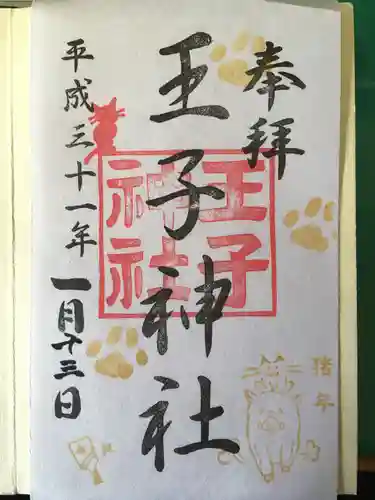 奉拝
王子神社
平成三十一年
一月十三日
王子
神社
猪年